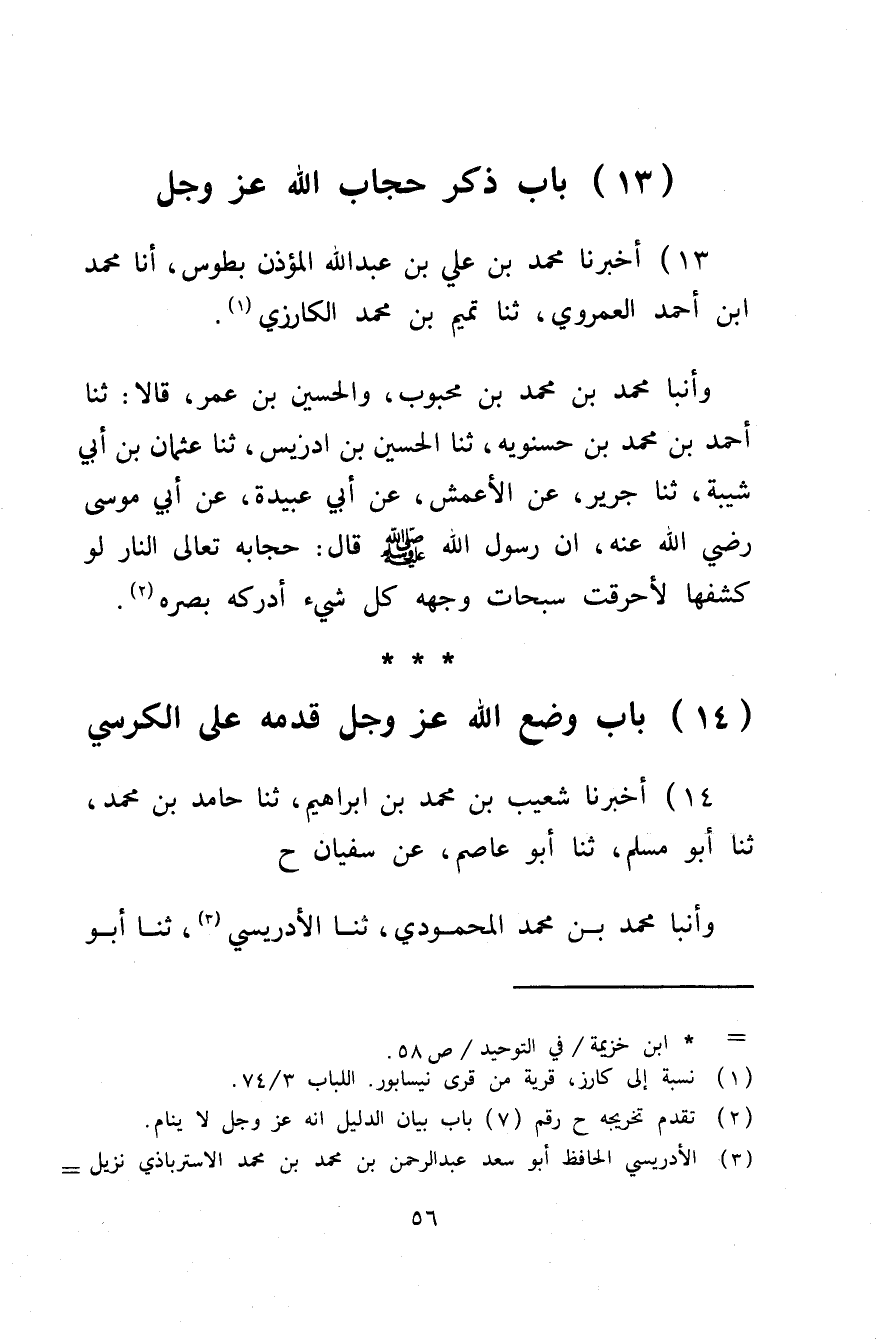 (١٣) باب ذكر حجاب الله عز وجل
١٣) أخبرنا محمد بن علي بن عبدالله المؤذن بطوس، أنا محمد
ابن أحمد العمروي، ثنا تميم بن محمد الكارزي(١).
وأنبا محمد بن محمد بن محبوب، والحسين بن عمر، قالا: ثنا
أحمد بن محمد بن حسنويه، ثنا الحسين بن ادريس، ثنا عثمان بن أبي
شيبة، ثنا جرير، عن الأعمش، عن أبي عبيدة، عن أبي موسى
رضي الله عنه، ان رسول الله ﷺ قال: حجابه تعالى النار لو
كشفها لأحرقت سبحات وجهه كل شيء أدركه بصره(٢).
* * *
(١٤) باب وضع الله عز وجل قدمه على الكرسي
١٤) أخبرنا شعيب بن محمد بن ابراهيم، ثنا حامد بن محمد،
ثنا أبو مسلم، ثنا أبو عاصم، عن سفيان ح
وأنبا محمد بن محمد المحمودي، ثنا الأدريسي(٣)، ثنا أبو
= * ابن خزيمة/ في التوحيد/ ص٥٨.
(١) نسبة إلى كارز، قرية من قرى نيسابور. اللباب ٧٤/٣.
(٢) تقدم تخريجه ح رقم (٧) باب بيان الدليل انه عز وجل لا ينام.
(٣) الأدريسي الحافظ أبو سعد عبدالرحمن بن محمد بن محمد الاسترباذي نزيل =
٥٦